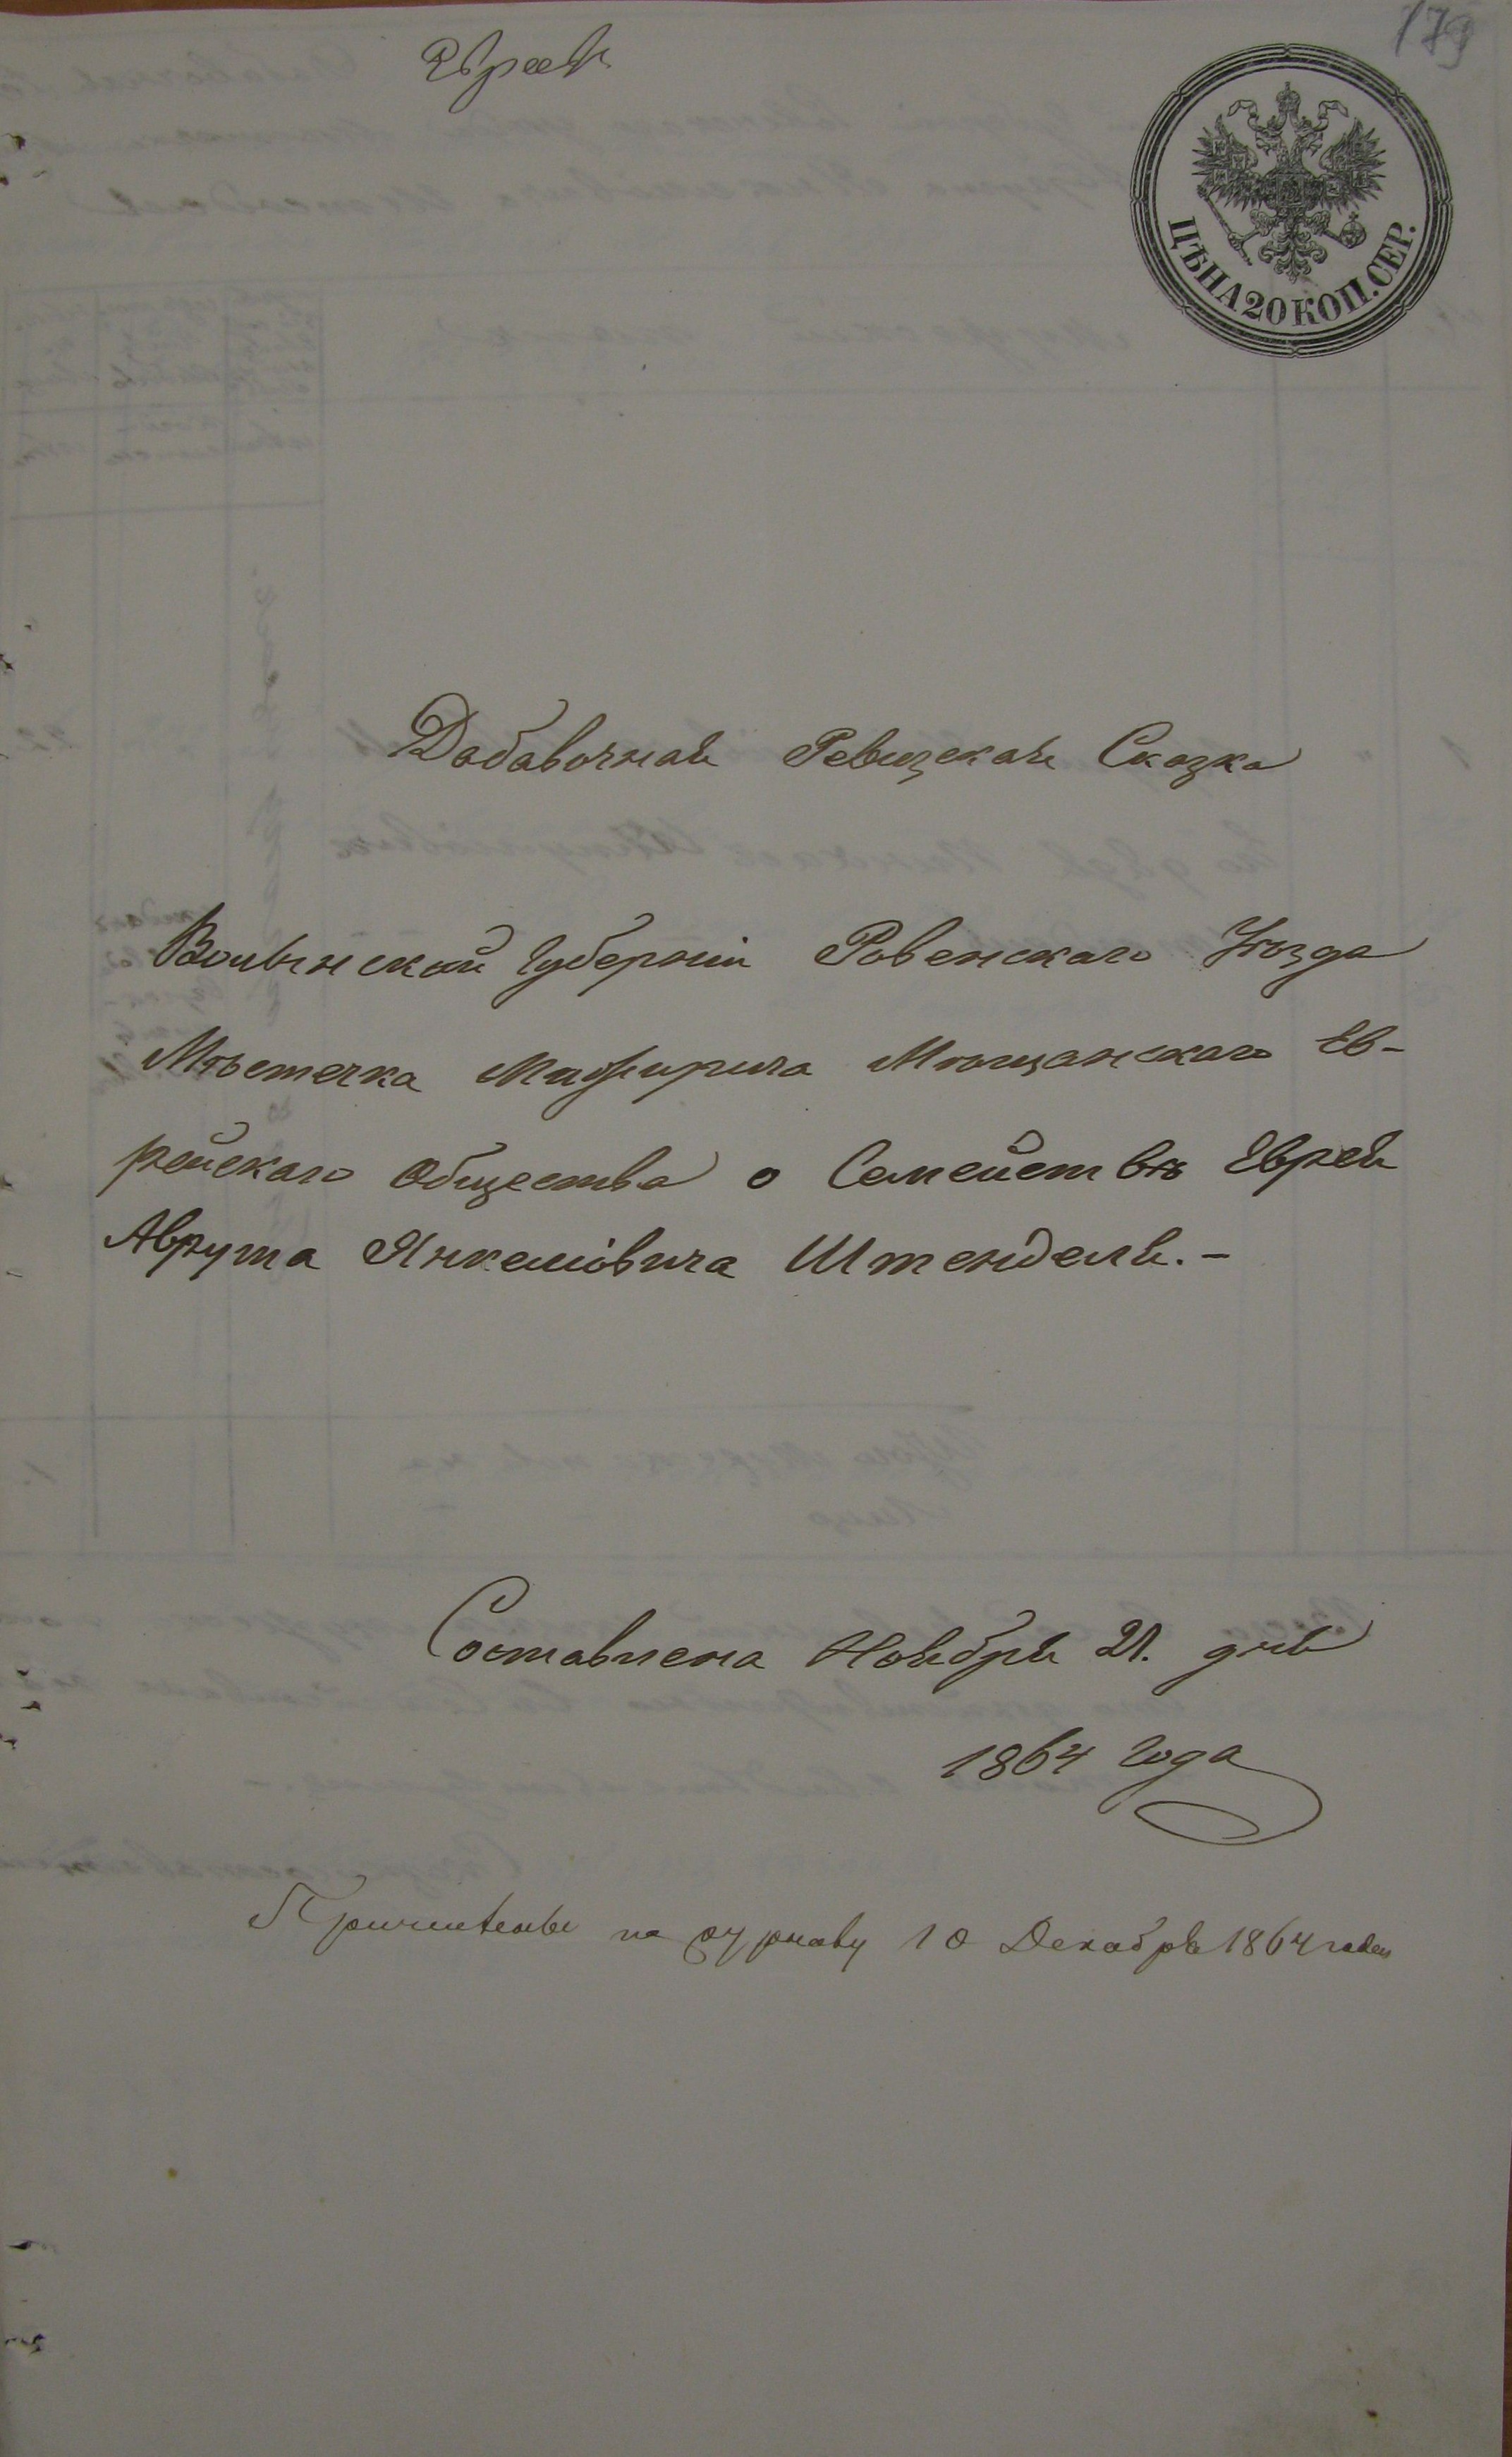 179
Евреи
ЦѢНА 20 КОП. СЕР.
Дабавочная Ревизская Сказка
Волынской Губерніи Ровенскаго Уѣзда
Мѣстечка Межирича Мѣщанскаго Ев-
рейскаго Общества о Семействѣ Еврея
Аврума Янкеліовича Штендель. -
Составлена Ноября 21. дня
1864 года
Причислены по журналу 10 Декабря 1864 года